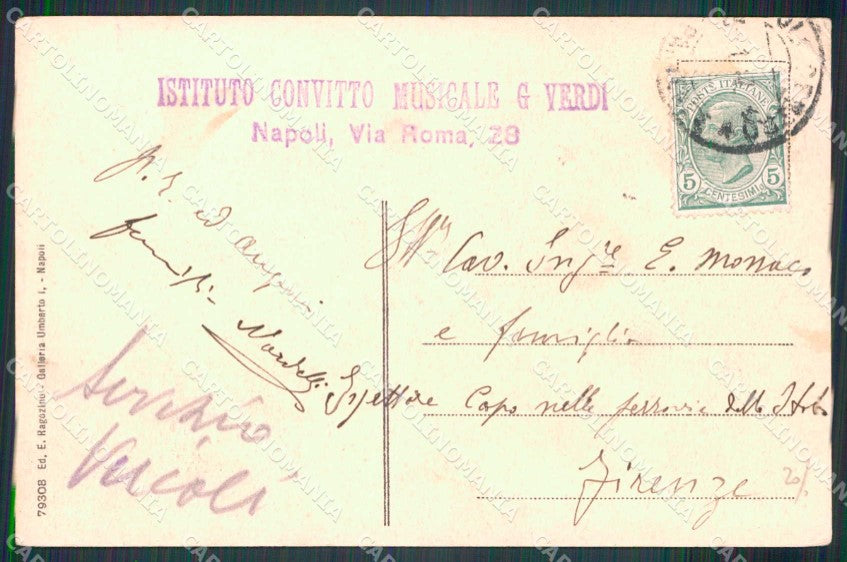 ISTITUTO CONVITTO MUSICALE G VERDI
Napoli, Via Roma, 28
POSTE ITALIANE
5 5
CENTESIMI
ed auguri
Nardelli
Cav. Ing.re E. Monaco
e famiglia
Ispettore Capo nelle ferrovie dello Stato
Firenze
Servizio
79308 Ed. E. Ragozino - Galleria Umberto I, - Napoli
CARTOLINOMANIA